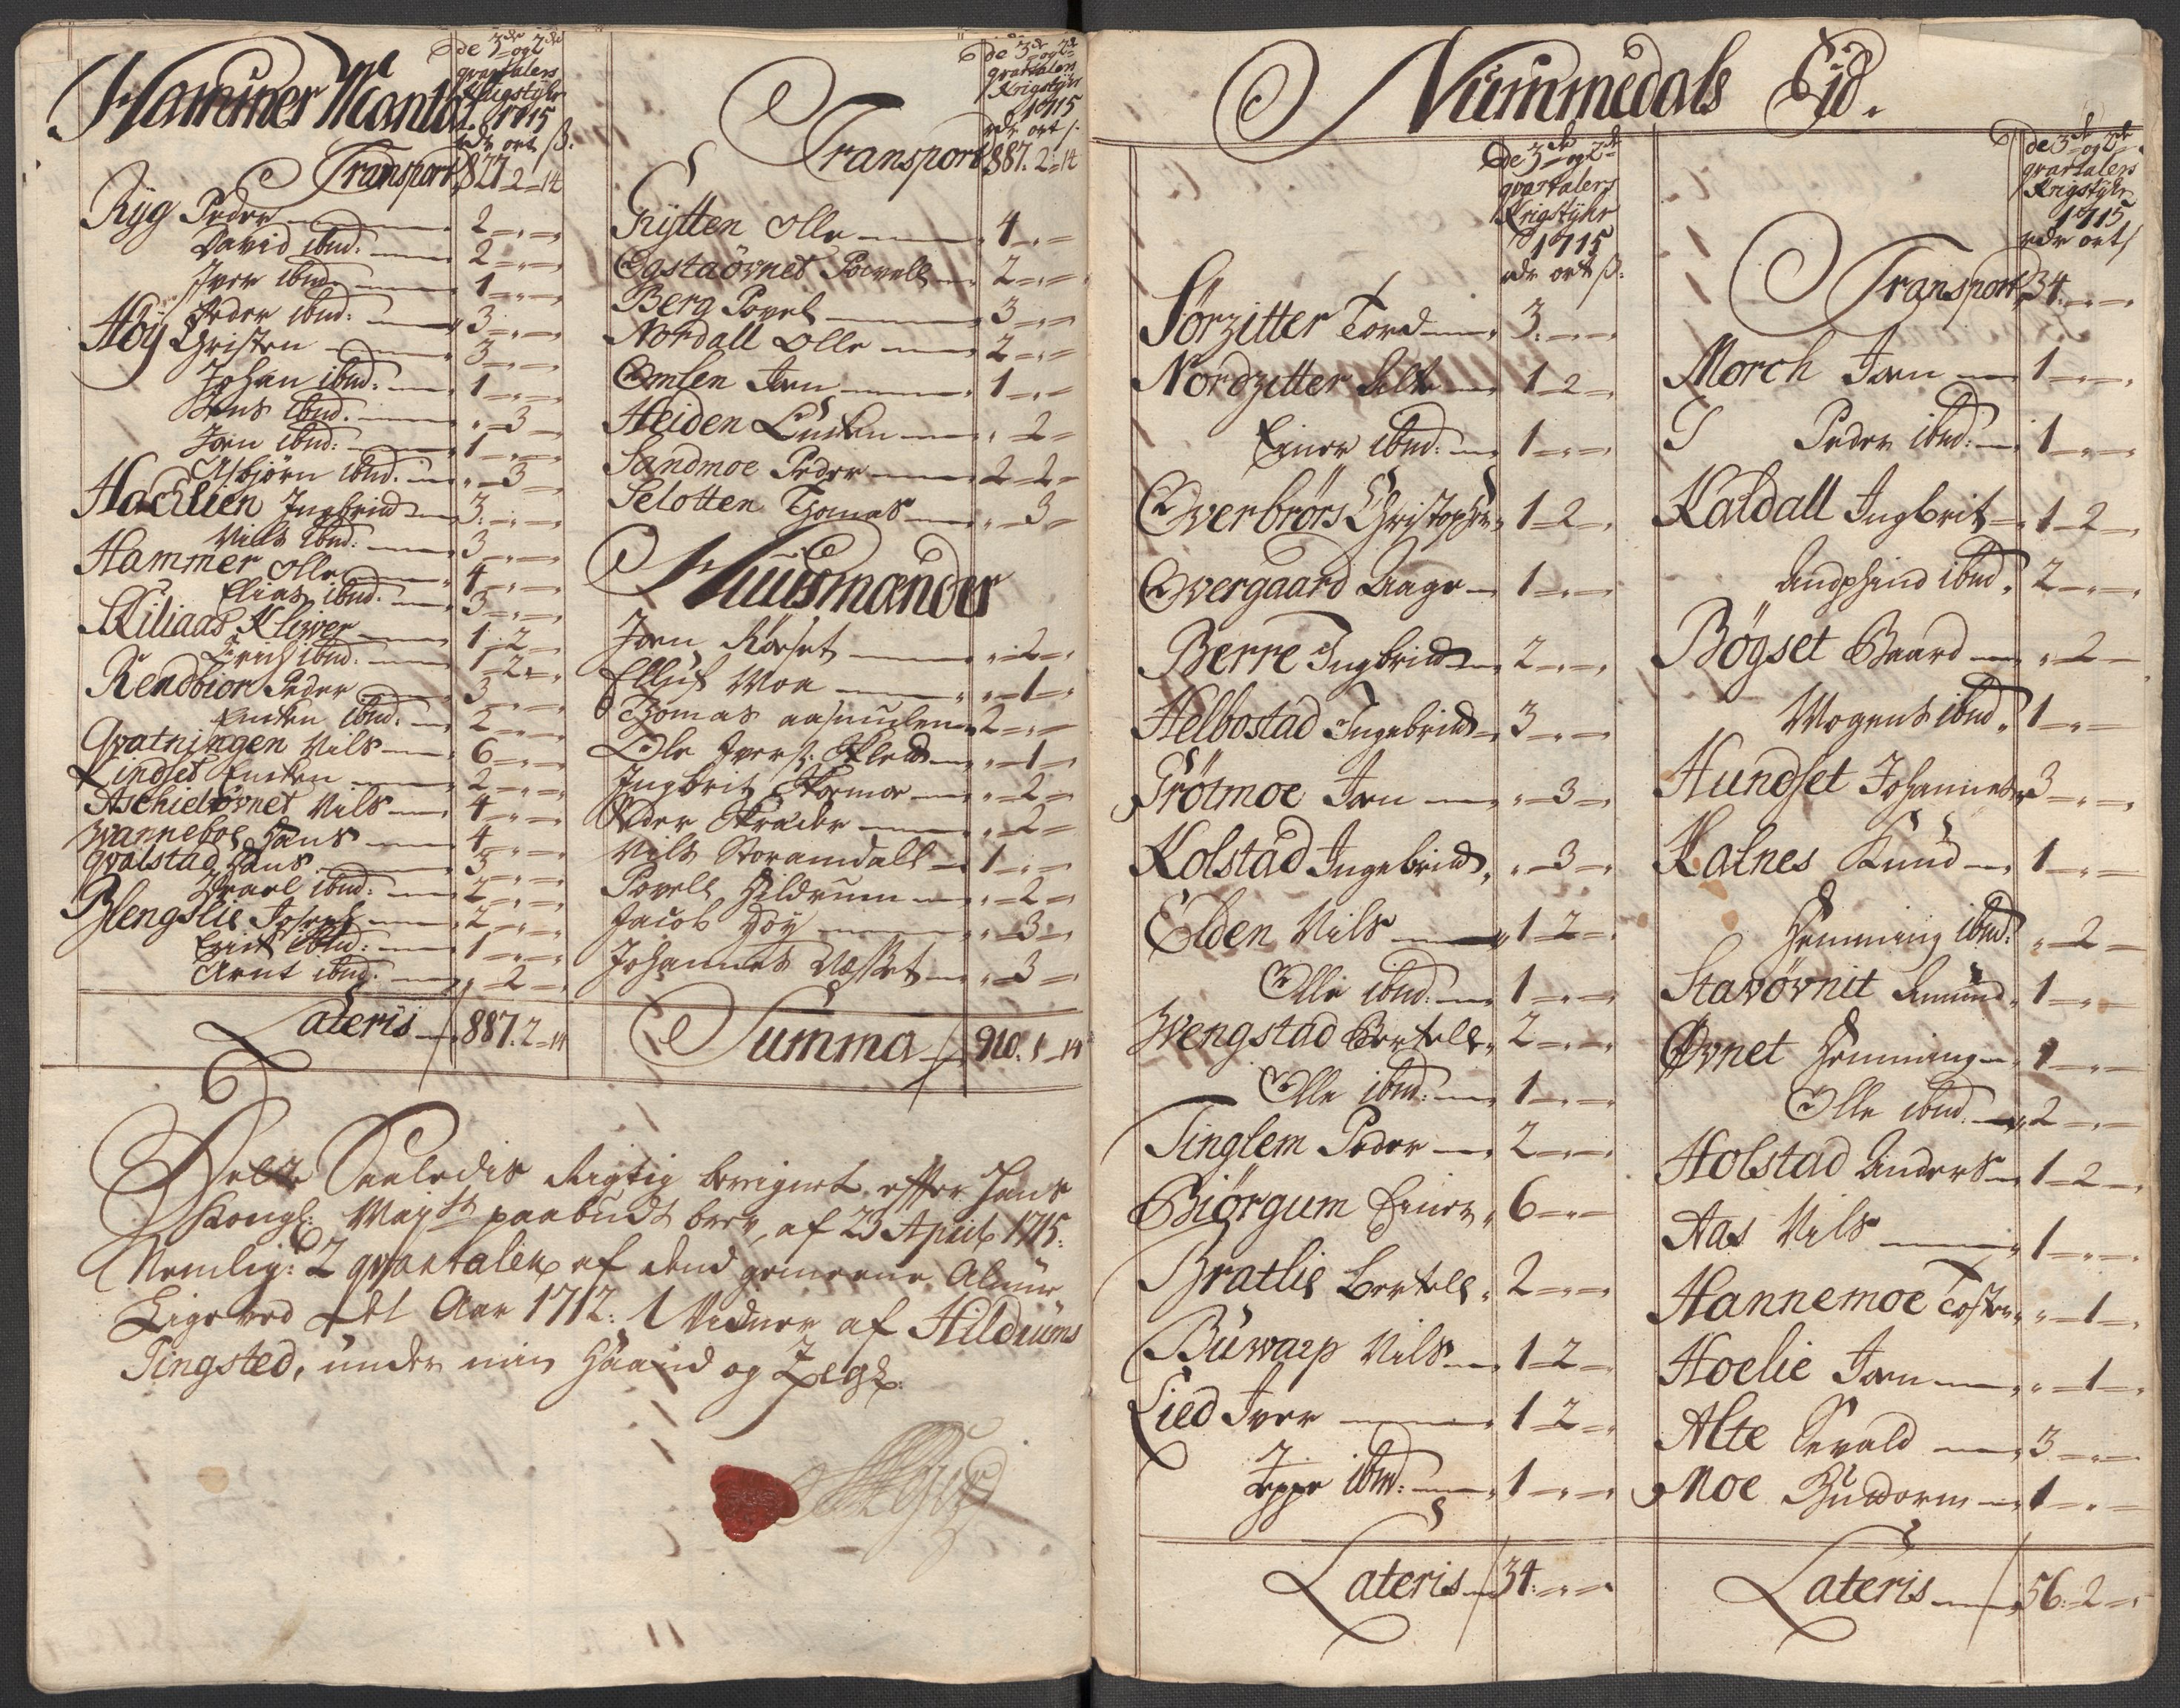 Hammer Mantal
de 3de og 2de
qvartalers
Krigstyhr
1715
rdr ort ß.
Transport 827-2-14
Ryg Peder 2
David ibnd: 2
Iver ibnd: 1
Peder ibnd: 3
Høy Christen 3
Johan ibnd: 1
Jens ibnd. 3
Jon ibnd: 1
Asbjørn ibnd. 3
Hachlien Ingbricht 3
Nils ibnd: 3
Hammer Olle 4
Elias ibnd. 3
Skiliaas Kliwer 1-2
Erich ibnd. 1-2
Rendbior Peder 3
Enchen ibnd. 2
Qvatningen Nils 6
Lindset Enchen 2
Aschielsövnet Nils 4
Wanneboe Hans 4
Qvalstad Hans 3
Joael ibnd: 2
Flengslie Joseph 2
Erich ibnd: 1
Arnt ibnd. 2
Lateris 887.2-14
de 3de og 2de
qvartalers
Krigstyhr
1715
rdr ort ß.
Transport 887.2-14
Grytten Olle 4
Ogstaövnet Powell 2
Berg Povel 3
Nordall Olle 2
Omlen Jon 1
Heiden Enchen 2
Sandmoe Peder 2-2
Selotten Thomas 3
Huusmænder
Jon Rørset 2
Elluf Moe 1
Thomas Aasmulen 2
Ole Iverß: Fleedt 1
Ingbrit Skormoe 2
Peder Skræder 2
Nils Storamdall 1
Povell Hildrum 2
Jacob Høy 3
Johannes 3
Summa 910.1-14
Dette Saaledis Rigtig berignet effter Hans
Kongl: Mayts paabudt brev, af 23 April 1715.
Nemlig: 2 qvartaler af dend gemeene Almue
Lige ved det Aar 1712. Vidner af Hildrums
Tingsted, under min Haand og Zegl.
Nummedals Eid.
de 3de og 2de
qvartalers
Krigstyhr
1715
rdr ort ß.
Sørzitter Tord 3
Nordzitter Silt 1-2
Einer ibnd: 1
Overbrörs Christopher 1-2
Overgaard Aage 1
Berre Ingbricht 2
Helbostad Ingebricht 3
Grötmoe Jon 3
Kolstad Ingebricht 3
Elden Nils 1-2
Olle ibnd. 1
Wengstad Bertell 2
Olle ibnd: 1
Tinglem Peder 2
Biörgum Einer 6
Bratlie Bertell 2
Buwarp Nils 1-2
Lied Iver 1-2
Jeppe ibnd: 1
Lateris 34
de 3de og 2de
qvartalers
Krigstyhr
1715
rdr ort ß
Transport 34
Morch Jon 1
Peder ibnd: 1
Kaldall Ingbrit 1-2
Andphind ibnd. 2
Bögset Baard 2
Mogens ibnd. 1
Hundset Johannes 3
Kalnes Knud 1
Hemming ibnd: 2
Stavövnit Amund 1
Øvnet Hemming 1
Olle ibnd. 2
Holstad Anders 1-2
Aas Nils 1
Hannemoe Tosten 1
Hoelie Jon 1
Alte Sevald 3
Moe Guttorm 1
Lateris 56-2